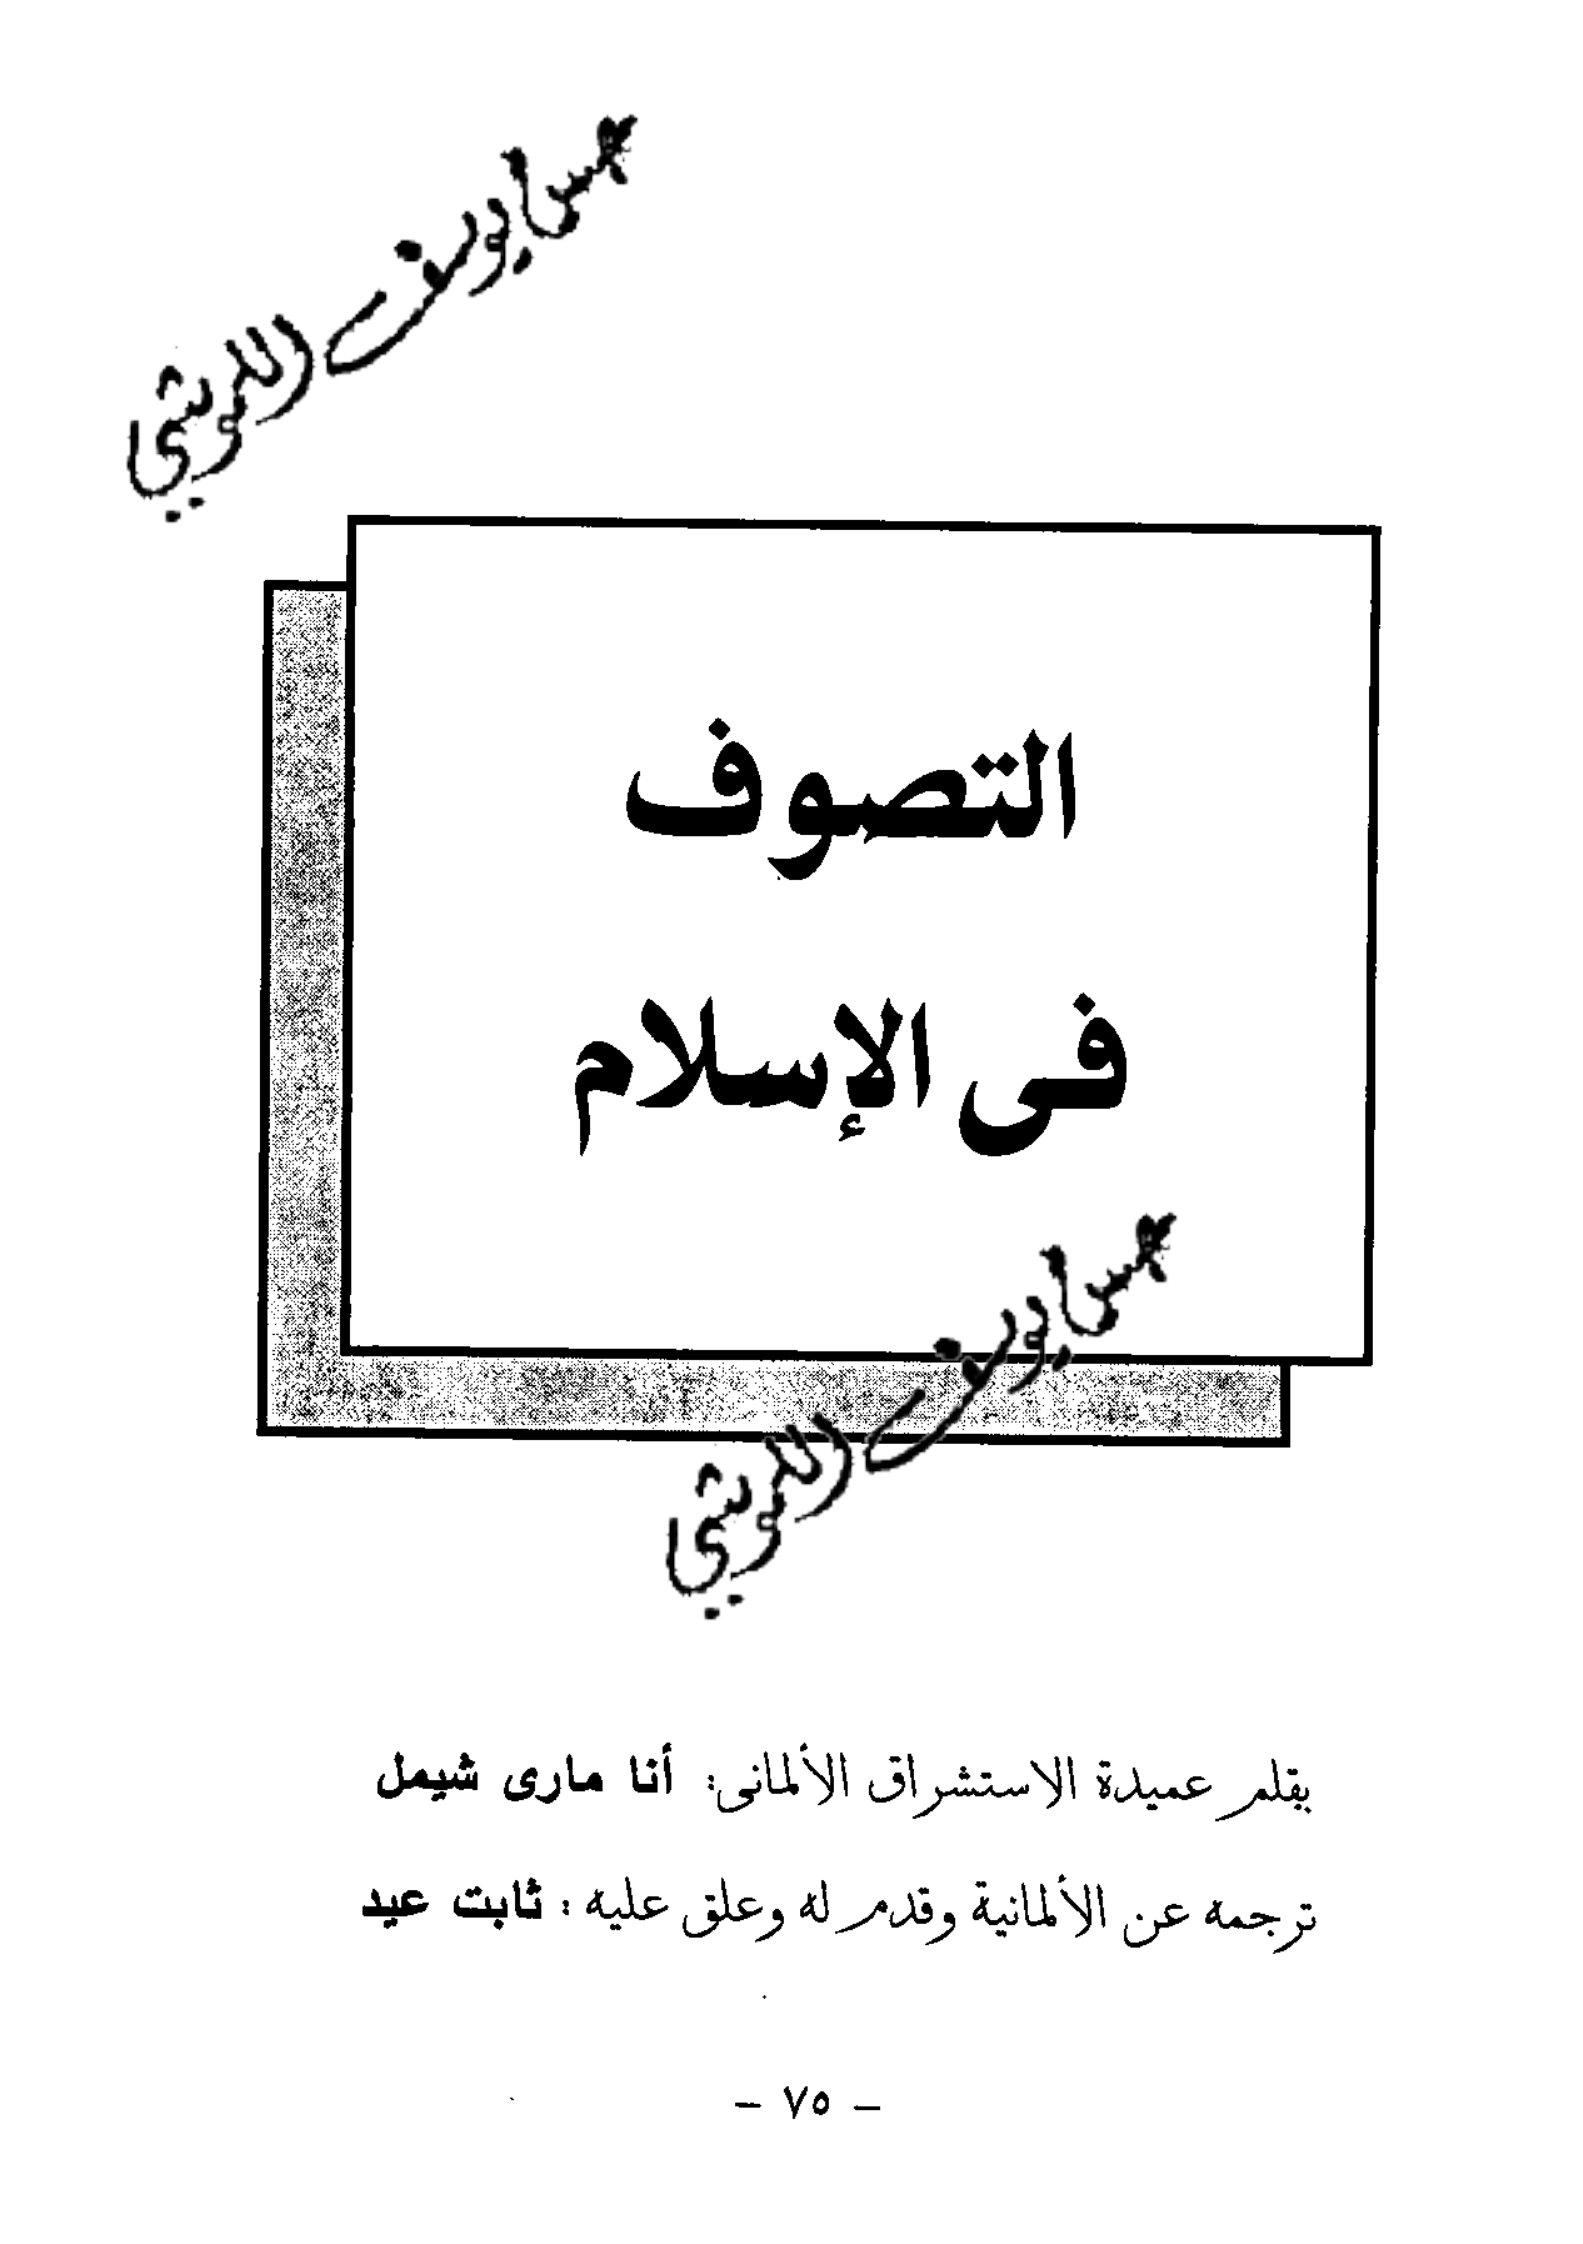 التصوف
فى الإسلام
يوسف
بقلم عميدة الاستشراق الألمانى: أنا مارى شيمل
ترجمه عن الألمانية وقدم له وعلق عليه: ثابت عيد
- ٧٥ -